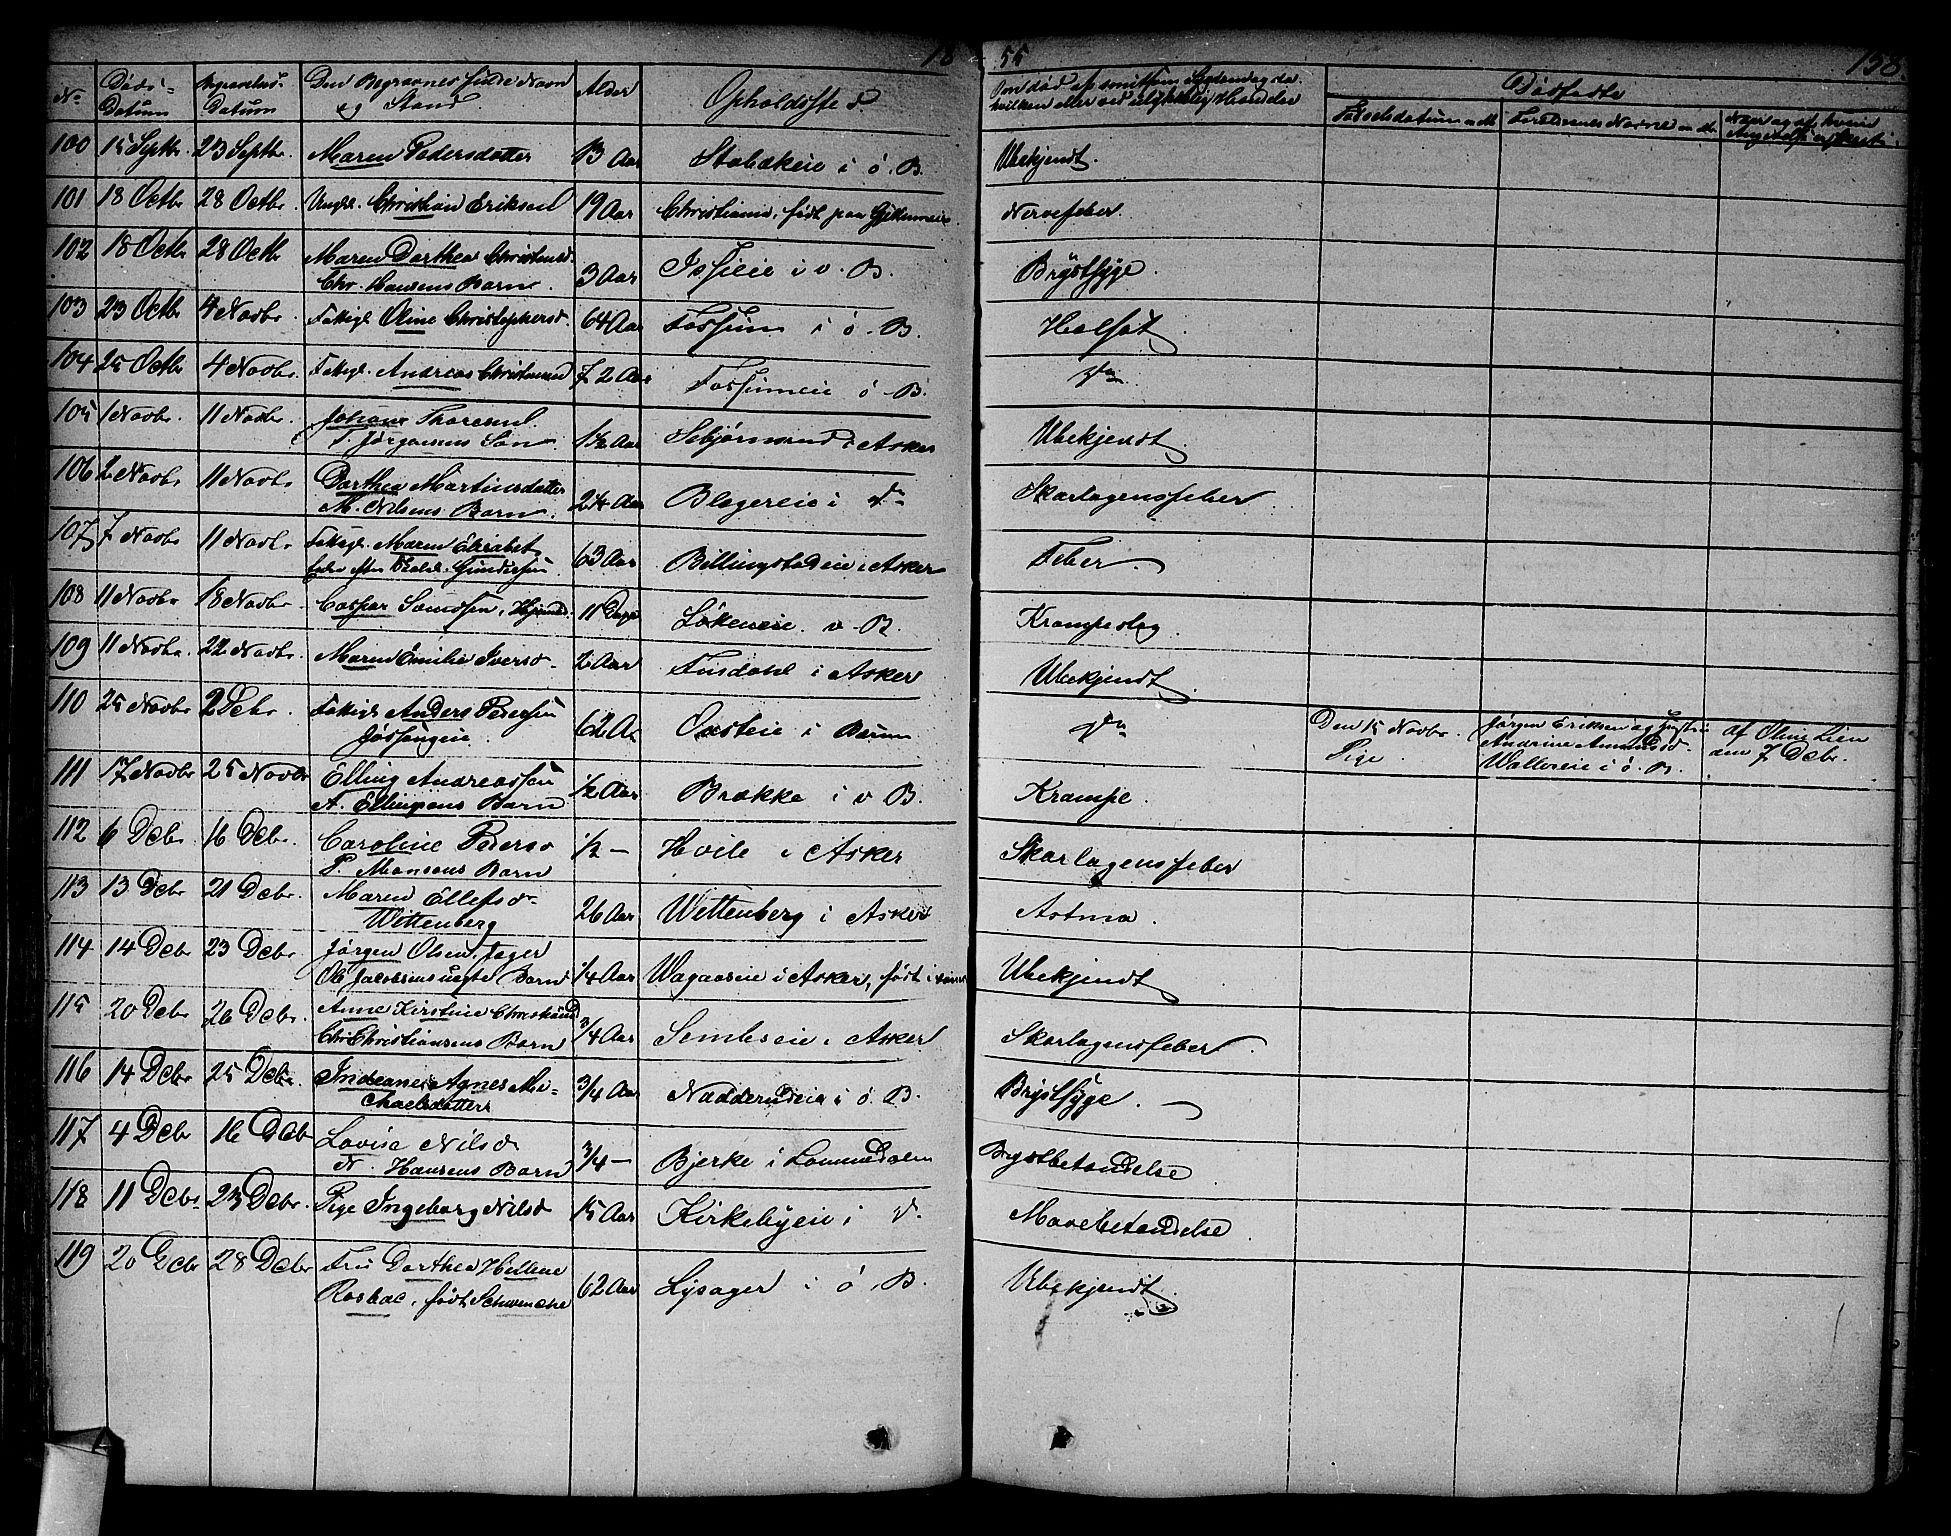 18 55 158
No Døds-Datum Begravelses-Datum Den Begravnes fulde Navn og Stand Alder Opholdssted Om død af smitsom Sygdom og da hvilken eller ved ulykkelig Hændelse Dødfødte
Fødselsdatum Forældrenes Navne
100 15 Septbr 23 Septbr. Maren Pedersdatter 13 Aar Stabækeie i ø. B. Ubekjendt.
101 18 Octbr 28 Octbr. Ungkl. Christian Eriksen 19 Aar Christiania, født paa Nervefeber.
102 18 Octbr 28 Octbr Maren Dorthea Christensd.
Chr. Hansens Barn. 3 Aar Isieie i v. B. Brystsyge.
103 23 Octbr 4 Novbr. Fattigl. Oline Christophersd. 64 Aar Fossum i ø. B. Halsot.
104 25 Octbr 4 Novbr. Fattigl. Andreas 72 Aar Fossumeie ø B. do
105 1 Novbr. 11 Novbr. Johan Thoresens
T. Jørgensens Søn 1½ Aar i Asker Ubekjendt.
106 2 Novbr 11 Novbr. Dorthea Martinsdatter
M. Nilsens Barn. 2¼ Aar Blegereie i do Skarlagensfeber
107 7 Novbr 11 Novbr. Fattigl. Maren Elisabet
Enke efter Gundersen 63 Aar Billingstadeie i Asker Feber.
108 11 Novbr 18 Novbr. Caspar 11 Dage Løkeneie v. B. Krampeslag
109 11 Novbr. 22 Novbr. Maren Emilie Iversd. 2 Aar Fusdahl i Asker Ubekjendt.
110 25 Novbr 2 Dcbr. Fattigl. Anders Pedersen
62 Aar i Bærum do Den 15 Novbr. Pige. Jørgen Eriksen og Hustru af Oline Lien
Andrine den 7 Dcbr.
Wallereie i ø. B.
111 17 Novbr 25 Novbr Elling Andreassen
A. Ellingsens Barn ½ Aar Brække i v B. Krampe.
112 6 Dcbr 16 Dcbr. Caroline Pedersd
P. Monsens Barn ½ - Hvile i Asker Skarlagensfeber
113 13 Dcbr 21 Dcbr. Maren Ellefsd.
Wettenberg 26 Aar Wettenberg i Asker Astma.
114 14 Dcbr 23 Dcbr. Jørgen Olsen,
Ole Jacobsens uegte Barn ¼ Aar i Asker, født i Ubekjendt
115 20 Dcbr 26 Dcbr. Anne Kirstine
Chr Christiansens Barn ¾ Aar Semseie i Asker Skarlagensfeber.
116 14 Dcbr 25 Dcbr. Indiane Agnes Mi-
chaelsdatter ¾ Aar Nadderudeie i ø. B. Brystsyge.
117 4 Dcbr 16 Dcbr Lovise Nilsd
N. Hansens Barn ¾ - Bjerke i Lommedalen Brystbetændelse
118 11 Dcbr. 23 Dcbr. Pige Ingeborg Nilsd 15 Aar Kirkebyeie i Mavebetændelse.
119 20 Dcbr 28 Dcbr Fru Dorthea Hellene
født Schwencke 62 Aar Lysager i ø B. Ubekjendt.